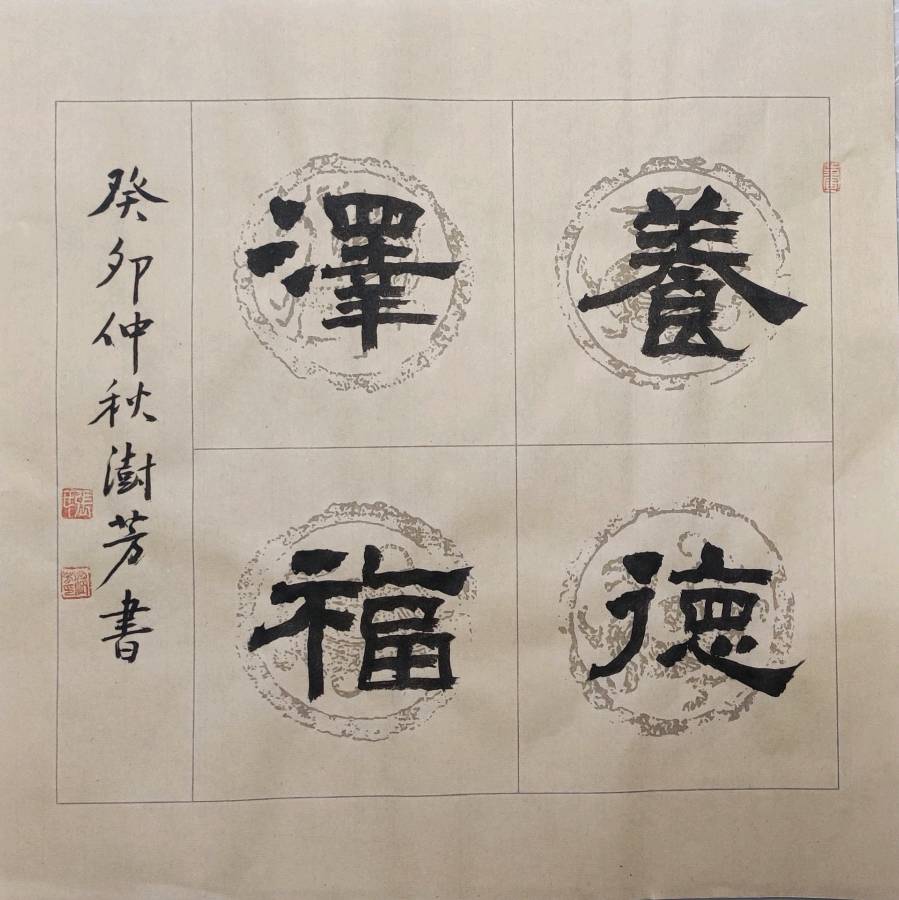 養德
澤福
癸卯仲秋澍芳書